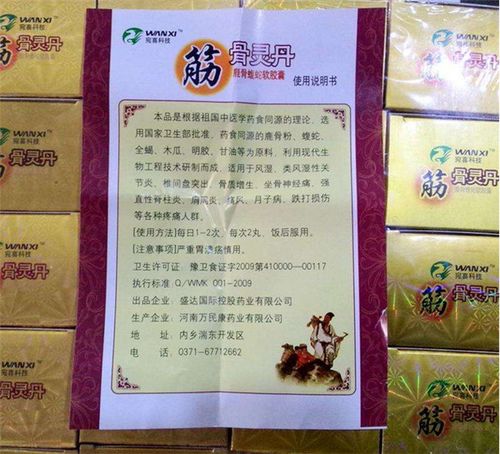 WANXI
宛喜科技
筋骨灵丹
鹿骨蝮蛇软胶囊
使用说明书
本品是根据祖国中医学药食同源的理论，选
用国家卫生部批准，药食同源的鹿骨粉、蝮蛇、
全蝎、木瓜、明胶、甘油等为原料，利用现代生
物工程技术研制而成，适用于风湿、类风湿性关
节炎、椎间盘突出、骨质增生、坐骨神经痛、强
直性脊柱炎、肩周炎、痛风、月子病、跌打损伤
等各种疼痛人群。
[使用方法]每日1-2次，每次2丸，饭后服用。
[注意事项]严重胃溃疡慎用。
卫生许可证：豫卫食证字2009第410000—00117
执行标准：Q/WMK 001-2009
出品企业：盛达国际控股药业有限公司
生产企业：河南万民康药业有限公司
地　　址：内乡湍东开发区
电　　话：0371-67712662
WANXI
宛喜科技
WANXI
宛喜科技
WANXI
宛喜科技
WANXI
宛喜科技
筋骨灵丹
WANXI
宛喜科技
筋骨灵丹
WANXI
宛喜科技
筋骨灵丹